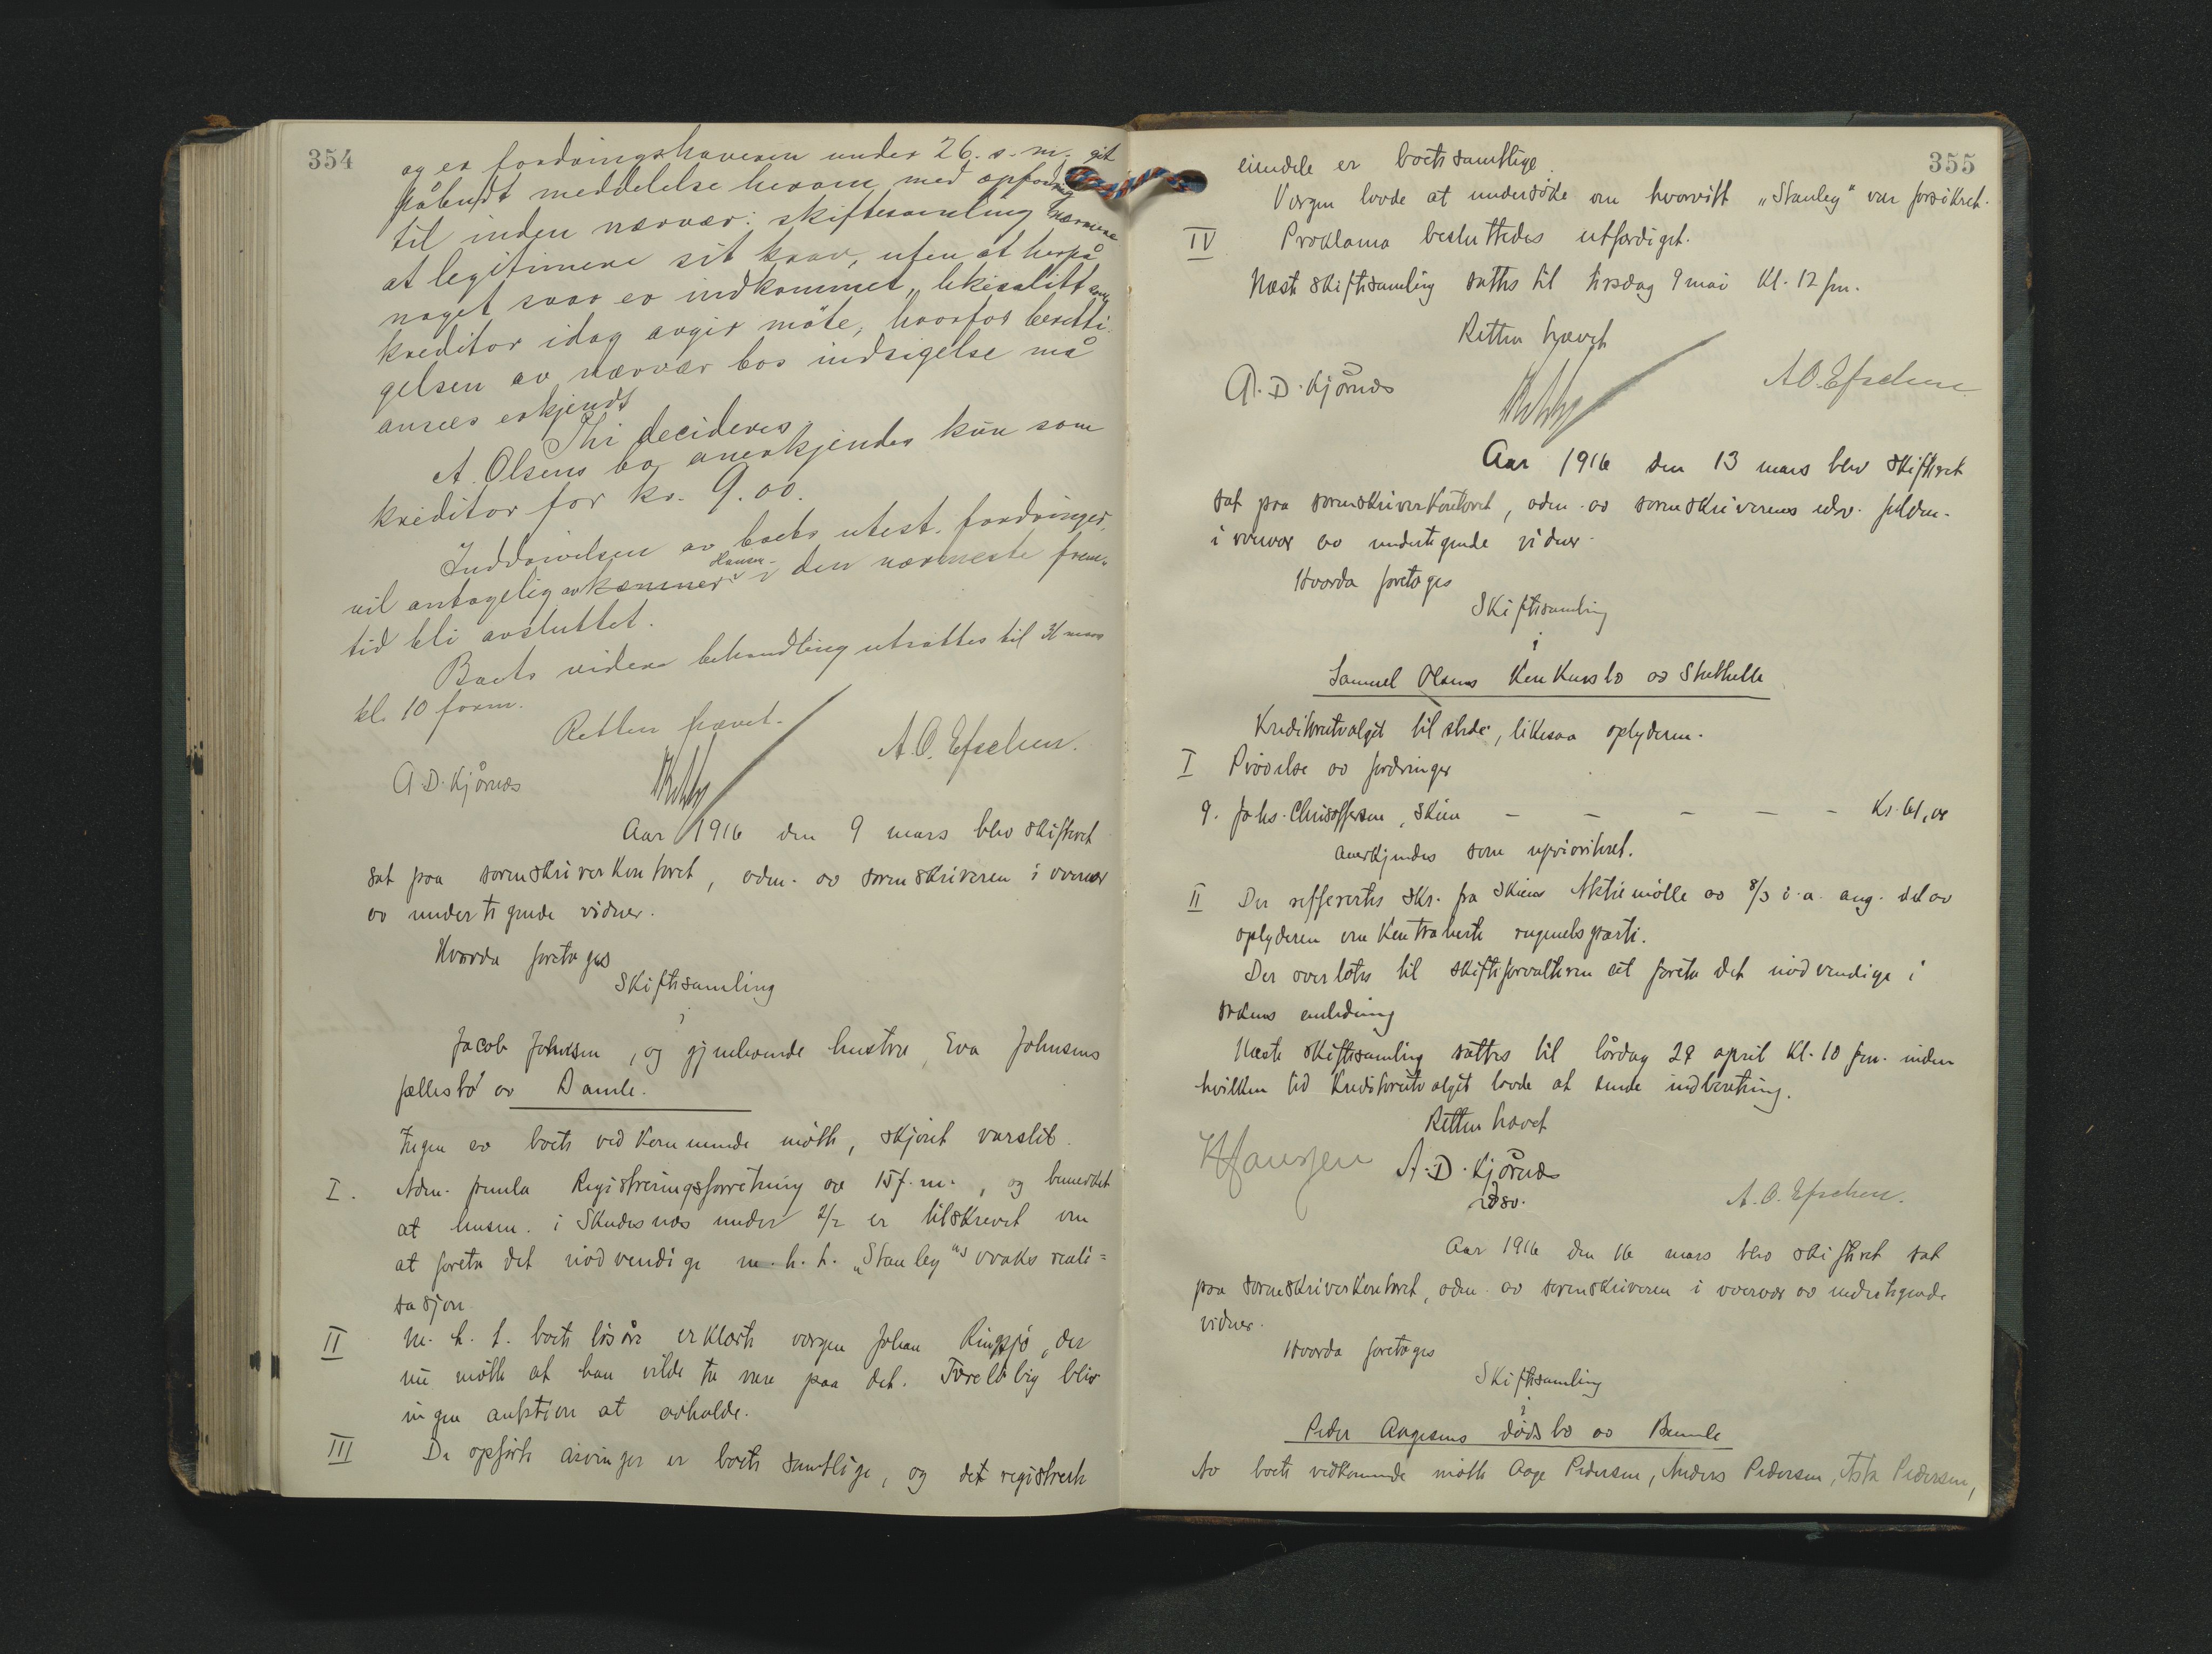 354
og er fordringshaveren under 26. s. m. git
påbudt meddelelse herom med opfordring
til inden nærvær: skiftesamling nærmere
at legitimere sit krav, uten at herpå
noget svar er indkommet, likesålitt som
kreditor idag avgir møte, hvorfor beretti-
gelsen av nærvær bos indsigelse må
ansees erkjendt
Thi decideres
A. Olsens bo anerkjendes kun som
kreditor for kr. 9.00.
Inddrivelsen av boets utest. fordringer,
vil antagelig av kæmner Hansen i den nærmeste frem-
tid bli avsluttet.
Boets videre behandling utsattes til 31 mars
kl. 10 form.
Retten hævet.
A. D. Kjörnes
A. O. Efschen.
Aar 1916 den 9 mars blev skifteret
sat paa sorenskriverkontoret, adm. av sorenskriveren i overvær
av undertegnede vidner.
Hvorda foretoges
Skiftesamling
i
Jacob Johnsen, og gjenlevende hustru, Eva Johnsens
fællesbo av Bamle.
Ingen av boets vedkommende møtte, skjønt varslet.
I. Adm. fremla Registreringsforretning av 15 f. m., og bemerket
at lensm. i Skudesnes under 2/2 er tilskrevet om
at foreta det nødvendige m. h. t. "Stanley"s vraks reali=
sasjon
II M. h. t. boets løsøre erklærte vergen Johan Ringsjø, der
nu møtte at han vilde ta vare paa det. Foreløbig blir
ingen auktion at avholde.
III De opførte arvinger er boets samtlige, og det registrerte
355
eiendele er boets samtlige.
Vergen lovde at undersøke om hvorvitt "Stanley" var forsikret.
IV Proklama besluttedes utfærdiget.
Næste skiftesamling sattes til tirsdag 9 mai kl. 12 fm.
Retten hævet
A. D. Kjörnes
A. O. Efschen
Aar 1916 den 13 mars blev skifteret
sat paa sorenskriverkontoret, adm. av sorenskriverens edsv. fuldm.
i overvær av undertegnede vidner.
Hvorda foretoges
Skiftesamling
i
Samuel Olsens Konkursbo av Stathelle
Kreditorutvalget tilstede, likesaa oplyderen.
I Prøvelse av fordringer
9. Johs. Christoffersen, Skien – – – – – Kr. 61,00
anerkjendes som uprioritert.
II Der reffererts skr. fra Skiens Aktiemølle av 8/3 d. a. ang. det av
oplyderen om kontraherte rugmelsparti.
Der overlotes til skifteforvalteren at foreta det nødvendige i
sakens anledning
Næste skiftesamling sattes til lørdag 29 april kl. 10 fm. inden
hvilken tid kreditorutvalget lovde at sende indberetning.
Retten hævet
A. D. Kjörnes
edsv.
A. O. Efschen.
Aar 1916 den 16 mars blev skifteret sat
paa sorenskriverkontoret, adm. av sorenskriveren i overvær av undertegnede
vidner.
Hvorda foretoges
Skiftesamling
i
Peder Aagesens dødsbo av Bamle
Av boets vedkommende møtte Aage Pedersen, Anders Pedersen, Asta Pedersen,